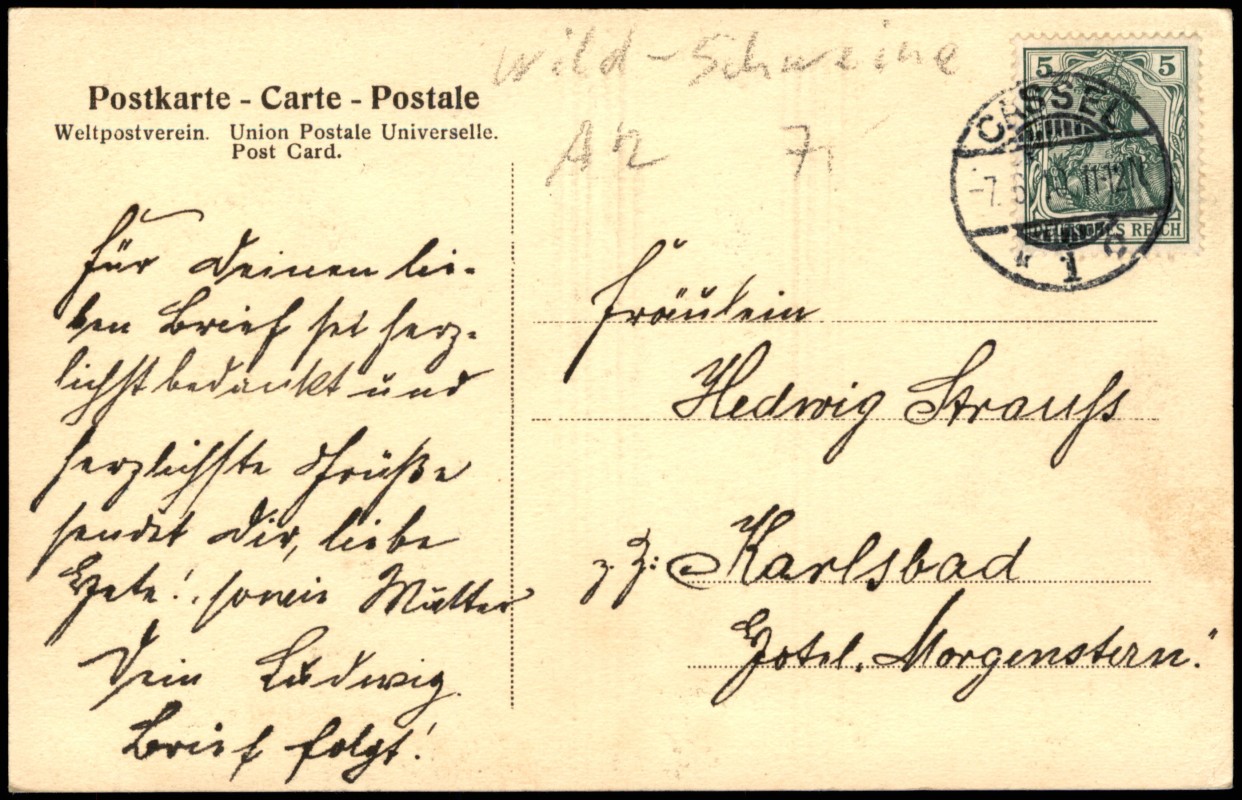 Wild-Schweine
Postkarte - Carte - Postale
Weltpostverein. Union Postale Universelle.
Post Card.
7,
5 5
DEUTSCHES REICH
CASSEL
-7. 11-12N
* 1 c.
Für Deinen lie-
ben Brief sei herz-
lichst bedankt und
herzlichste Grüße
sendet Dir, liebe
sowie Mutter
Dein Ludwig.
Brief folgt!
Fräulein
Hedwig Strauss
z. Z: Karlsbad
Hotel „Morgenstern".